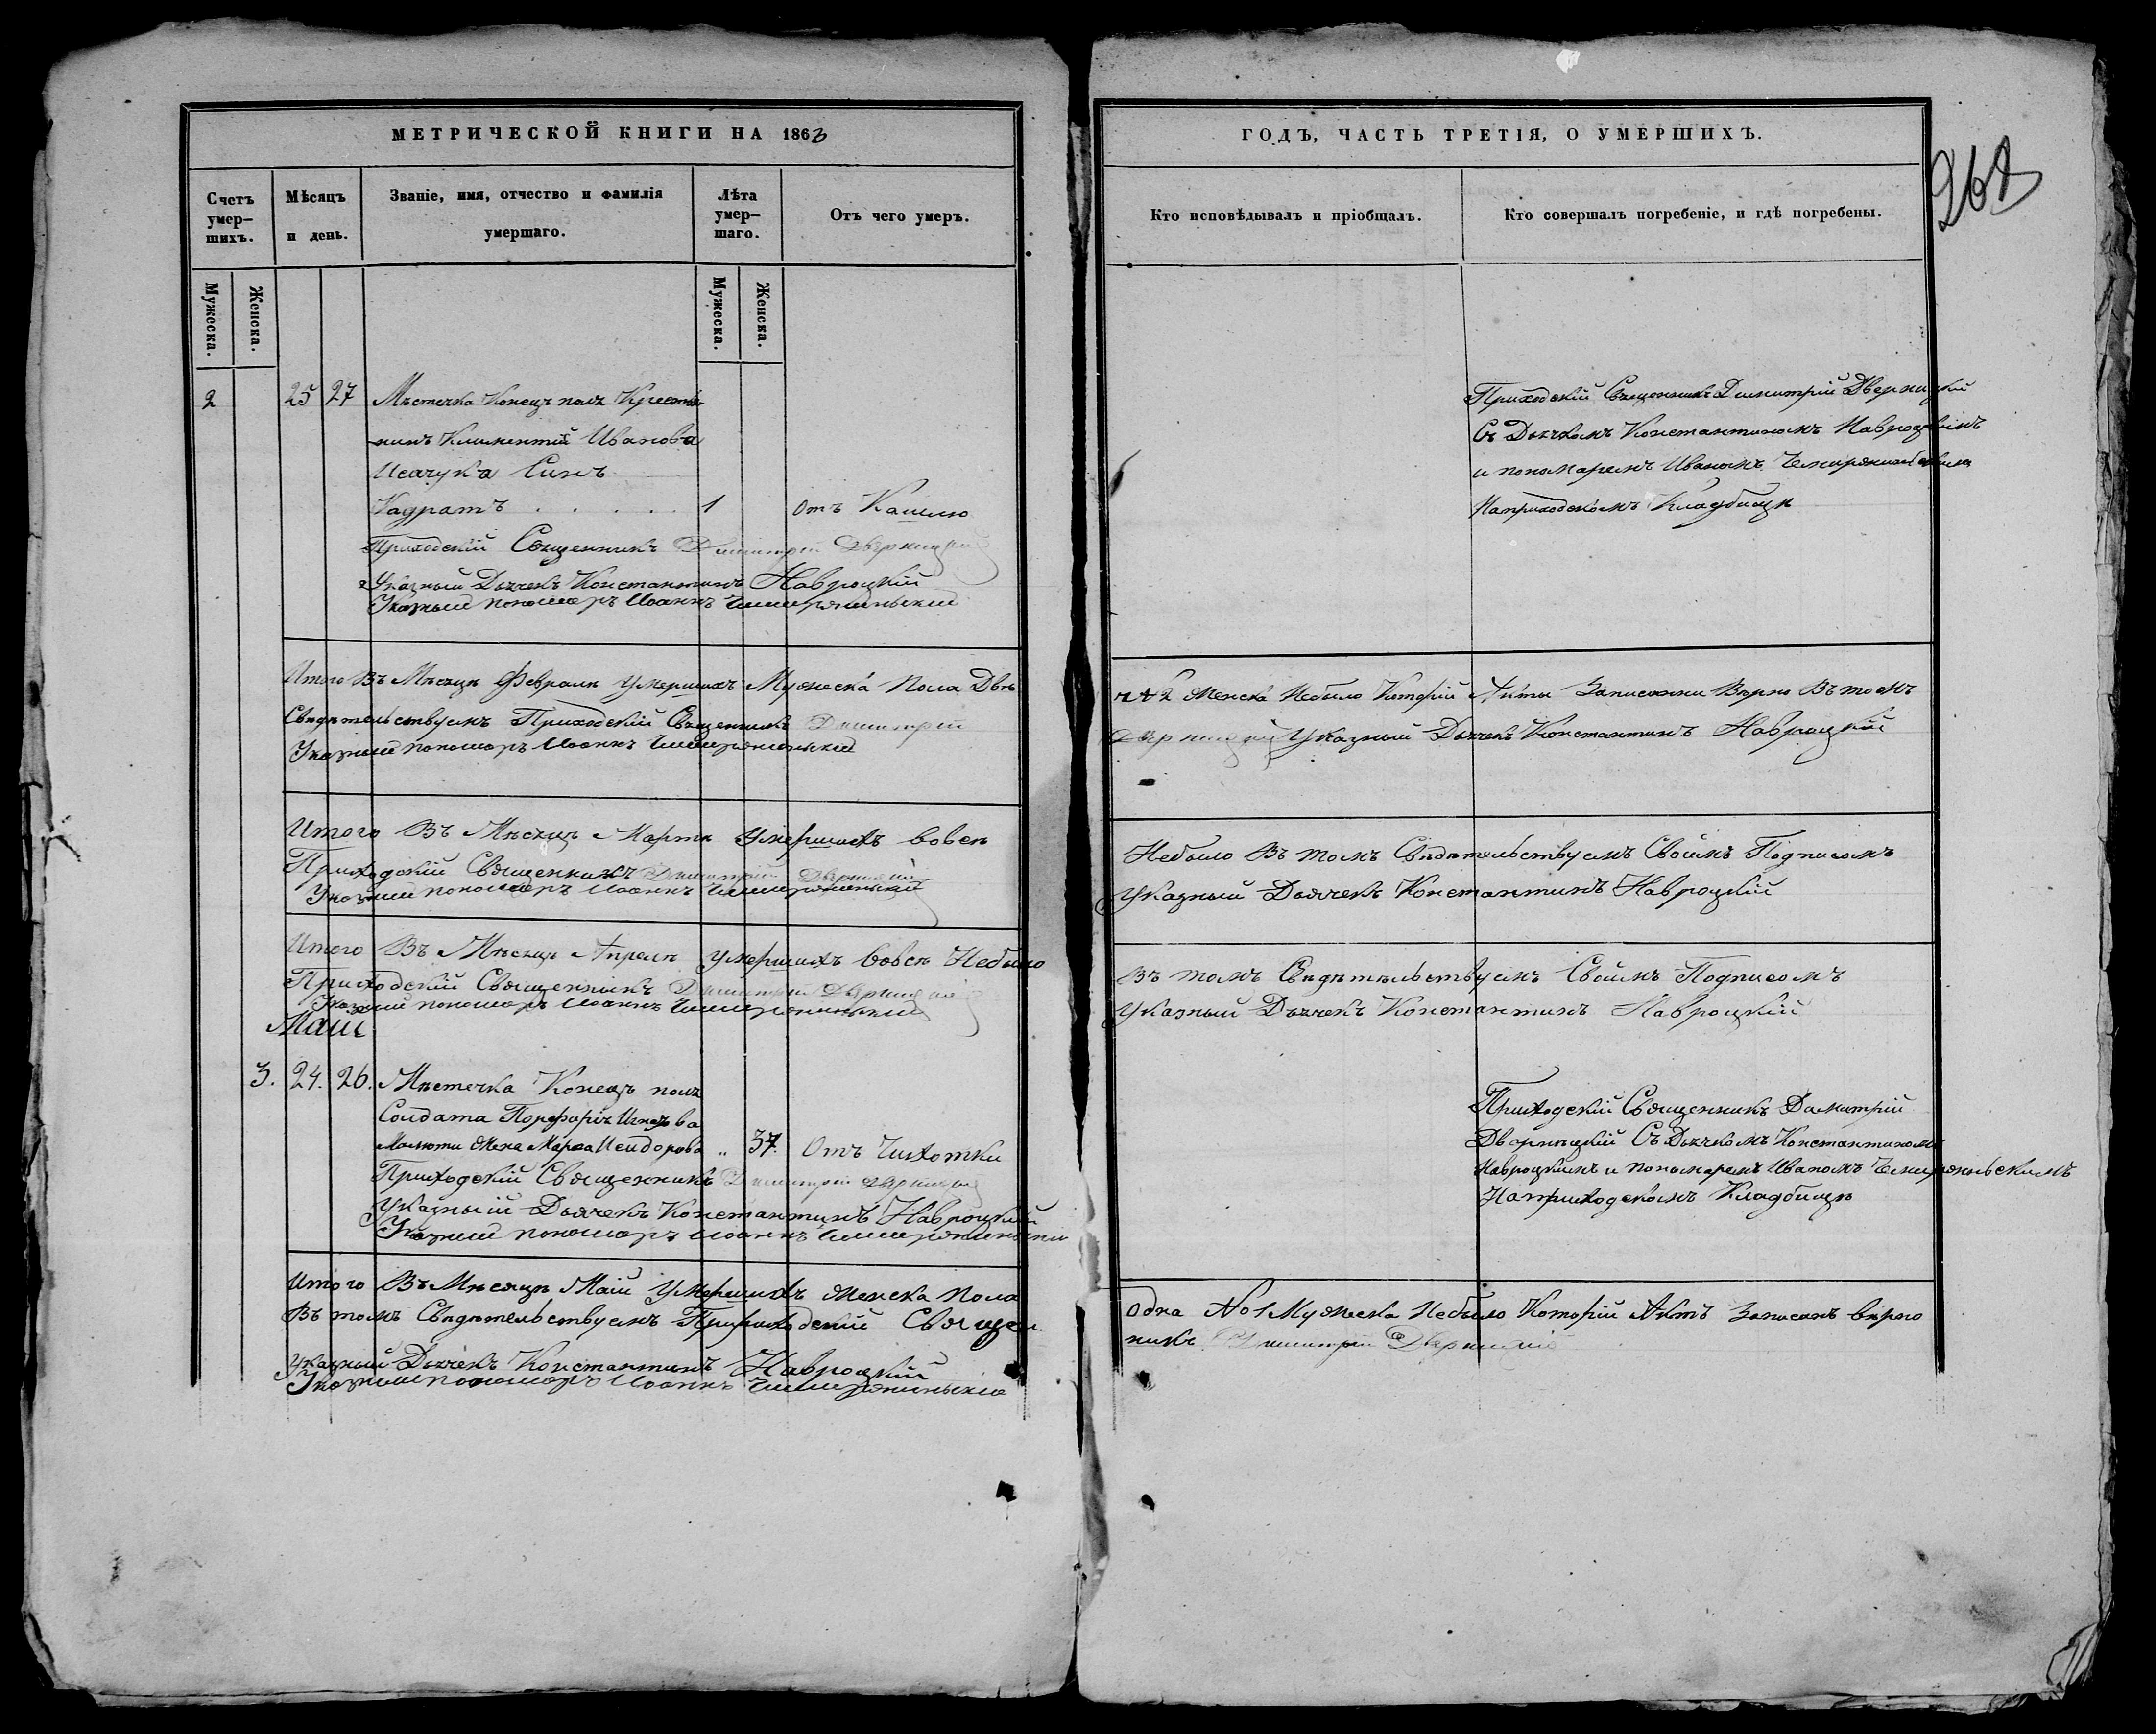 МЕТРИЧЕСКОЙ КНИГИ НА 1863
Счетъ умер-шихъ.
Мѣсяцъ и день.
Званіе, имя, отчество и фамилія умершаго.
Лѣта умер-шаго.
Отъ чего умеръ.
Мужеска.
Женска.
Мужеска.
Женска.
2 25 27 Мѣстечка Конецъ поля Крестья-
нинъ Климентій Иванова
Исачука Синъ
Кадратъ . . . . . 1 Отъ Кашлю
Приходскій Священникъ Димитрій Дверницкій
Указный Дьячекъ Константинъ Навроцкій
Указный пономаръ Іоаннъ
Итого Въ Мѣсяцѣ Февралѣ Умершихъ Мужеска Пола Два
Свидѣтельствуемъ Приходскій Священникъ Димитрій
Указный пономаръ Іоаннъ
Итого Въ Мѣсяцѣ Мартѣ Умершихъ вовсѣ
Приходскій Священникъ Димитрій Дверницкій
Указный пономаръ Іоаннъ
Итого Въ Мѣсяцѣ Апрелѣ умершихъ вовсѣ Небыло
Приходскій Священникъ Димитрій Дверницкій
Указный пономаръ Іоаннъ
Маій
3. 24. 26. Мѣстечка Конецъ поля
Солдата Порфирія
жена Марѳа Исидорова „ 37. Отъ Чихотки
Приходскій Священникъ Димитрій Дверницкій
Указный Дьячекъ Константинъ Навроцкій
Указный пономаръ Іоаннъ
Итого Въ Мѣсяцѣ Маіи Умершихъ женска Пола
Въ томъ Свидѣтельствуемъ Приходскій Священ
Указный Дьячекъ Константинъ Навроцкій
Указный пономаръ Іоаннъ
ГОДЪ, ЧАСТЬ ТРЕТІЯ, О УМЕРШИХЪ.
Кто исповѣдывалъ и пріобщалъ.
Кто совершалъ погребеніе, и гдѣ погребены.
Приходскій Священникъ Димитрій Дверницкій
Съ Дьячкомъ Константиномъ Навроцкимъ
и пономаремъ Иваномъ
Наприходскомъ Кладбищѣ
2 Женска Небыло Которій Акты Записанни Вѣрно Въ томъ
Дверницкій Указный Дьячекъ Константинъ Навроцкій
Небыло Въ томъ Свидѣтельствуемъ Своимъ Подписомъ
Указный Дьячекъ Константинъ Навроцкій
Въ томъ Свидѣтельствуемъ Своимъ Подписомъ
Указный Дьячекъ Константинъ Навроцкій
Приходскій Священникъ Димитрій
Дверницкій Съ Дьячкомъ Константиномъ
Навроцкимъ и пономаремъ Иваномъ
Наприходскомъ Кладбищѣ
Одна No 1 Мужеска Небыло Которій Актъ Записанъ вѣрно
никъ Димитрій Дверницкій